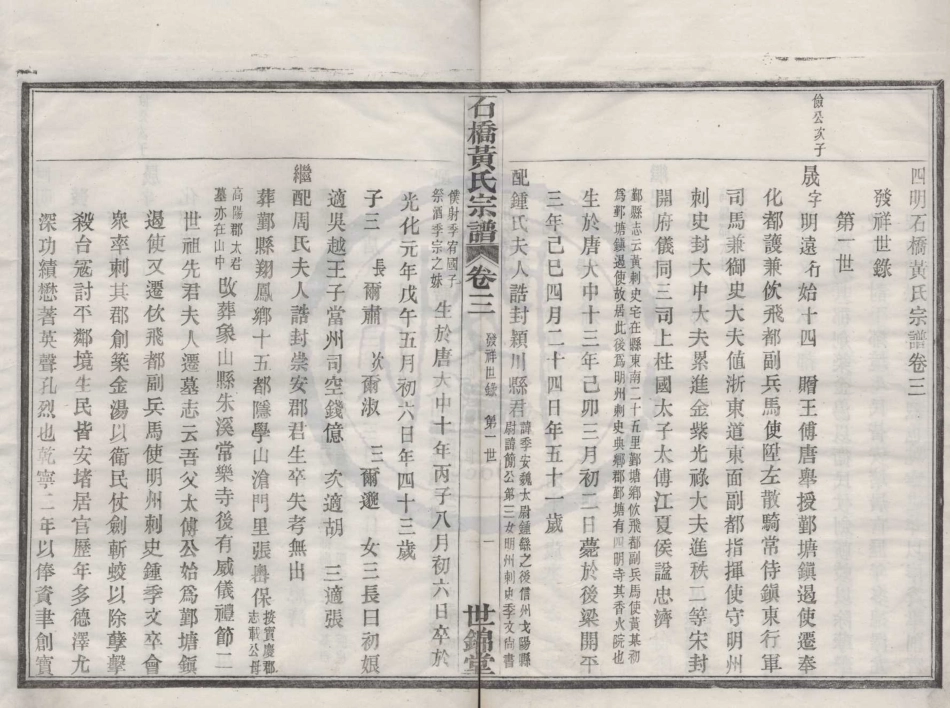 四明石橋黃氏宗譜卷三
發祥世錄
第一世
儉公次子
晟字明遠行始十四 贈王傅唐舉授鄞塘鎭遏使遷奉
化都護兼佽飛都副兵馬使陞左散騎常待鎭東行軍
司馬兼御史大夫値浙東道東面副都指揮使守明州
刺史封大中大夫累進金紫光祿大夫進秩二等宋封
開府儀同三司上柱國太子太傅江夏侯諡忠濟
鄞縣志云黃刺史宅在縣東南二十五里鄞塘鄉佽飛都副兵馬使黃某初
爲鄞塘鎭遏使故居此後爲明州刺史典鄉郡鄞塘有四明寺其香火院也
生於唐大中十三年己卯三月初二日薨於後梁開平
三年己巳四月二十四日年五十一歲
配鍾氏夫人誥封潁川縣君
諱季安魏太尉鍾繇之後信州戈陽縣
尉諱簡公第三女明州刺史季文尚書
石橋黃氏宗譜 卷三 發祥世錄 第一世 一 世錦堂
僕射季宥國子
祭酒季宗之妹
生於唐大中十年丙子八月初六日卒於
光化元年戊午五月初六日年四十三歲
子三 長爾肅 次爾淑 三爾邈 女三長曰初娘
適吳越王子當州司空錢億 次適胡 三適張
繼配周氏夫人誥封崇安郡君生卒失考無出
葬鄞縣翔鳳鄉十五都隱學山滄門里張嶴保
按寶慶郡
志載公母
高陽郡太君
墓亦在山中
改葬象山縣朱溪常樂寺後有威儀禮節二
世祖先君夫人遷墓志云吾父太傅公始爲鄞塘鎭
遏使又遷佽飛都副兵馬使明州刺史鍾季文卒會
衆率刺其郡創築金湯以衛民杖劍斬蛟以除孽擊
殺台寇討平鄰境生民皆安堵居官歷年多德澤尤
深功績懋著英聲孔烈也乾寧二年以俸資聿創寶